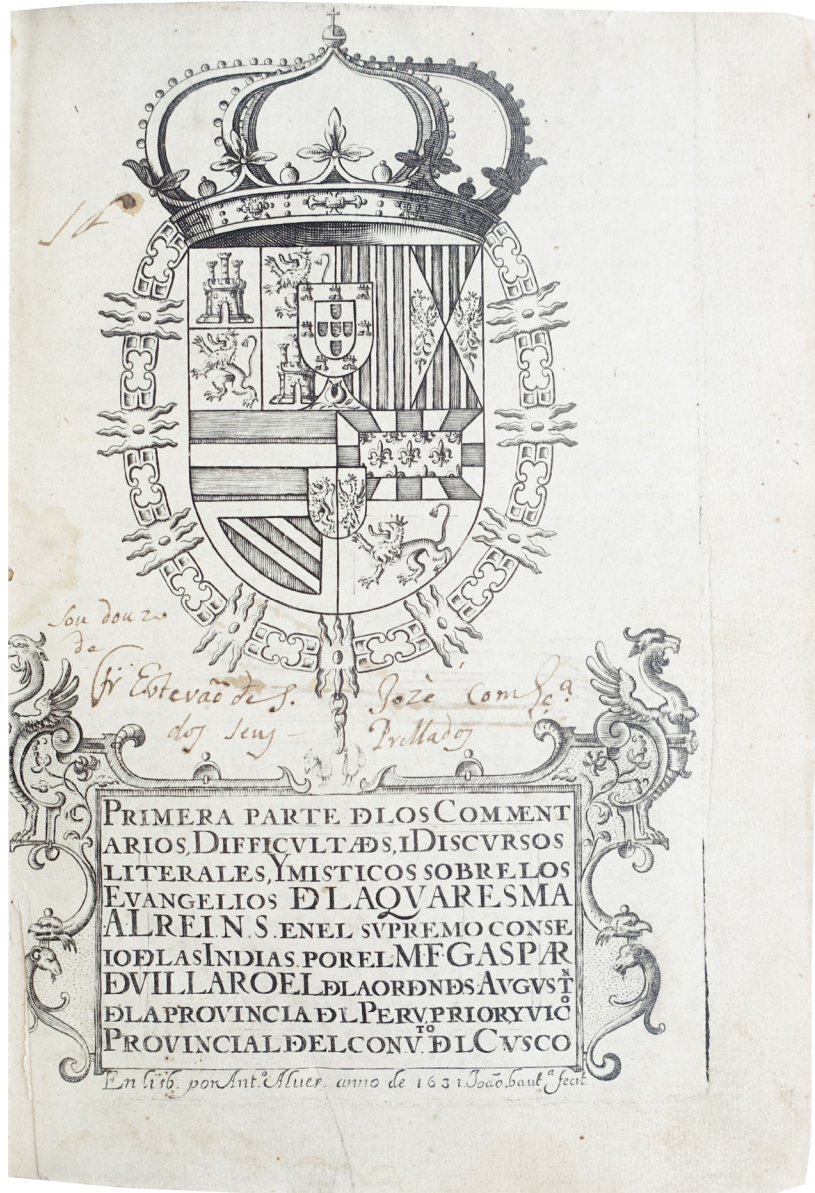 Sou do uzo
de
fr Estevaõ de S. Jozè com Lça
dos seus Prellados
PRIMERA PARTE DLOS COMMENT
ARIOS, DIFFICVLTADS, I DISCVRSOS
LITERALES, Y MISTICOS SOBRE LOS
EVANGELIOS DLA QVARESMA
AL REI. N. S. EN EL SVPREMO CONSE
IO DLAS INDIAS. POR EL M F. GASPAR
D VILLAROEL DLA ORDN DS. AVGVSTN
DLA PROVINCIA DL PERV, PRIOR Y VICº
PROVINCIAL DEL CONV.TO DL CVSCO
En lisb. por Ant.º Alvez. anno de 1631. João baut.ª fecit.